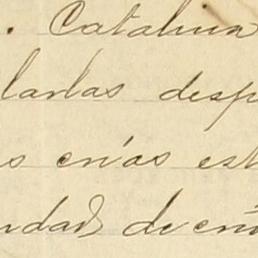 . Catalina
larlas desp
s en'as est
ndad de en